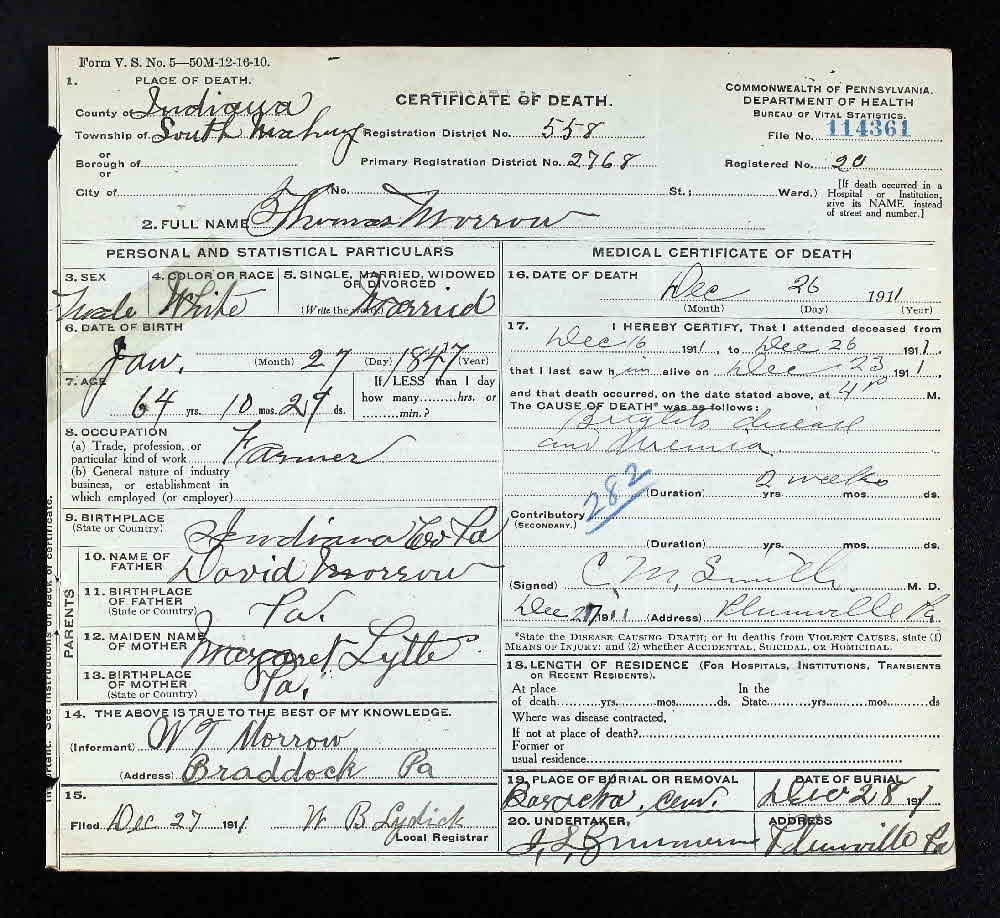 Form V. S. No. 5—50M-12-16-10.
1. PLACE OF DEATH.
County of Indiana
Township of South Mahng
or
Borough of
or
City of
CERTIFICATE OF DEATH.
Registration District No. 558
Primary Registration District No. 2768
No. St.; Ward.)
COMMONWEALTH OF PENNSYLVANIA.
DEPARTMENT OF HEALTH
BUREAU OF VITAL STATISTICS.
File No. 114361
Registered No. 20
[If death occurred in a
Hospital or Institution,
give its NAME instead
of street and number.]
2. FULL NAME Thomas Morrow
PERSONAL AND STATISTICAL PARTICULARS
3. SEX
Male
4. COLOR OR RACE
White
5. SINGLE, MARRIED, WIDOWED
OR DIVORCED
(Write the word) Married
6. DATE OF BIRTH
Jan. (Month) 27 (Day) 1847 (Year)
7. AGE
64 yrs. 10 mos. 29 ds.
If LESS than 1 day
how many hrs. or
min.?
8. OCCUPATION
(a) Trade, profession, or
particular kind of work Farmer
(b) General nature of industry
business, or establishment in
which employed (or employer)
9. BIRTHPLACE
(State or Country) Indiana Co Pa
PARENTS
10. NAME OF
FATHER David Morrow
11. BIRTHPLACE
OF FATHER
(State or Country) Pa.
12. MAIDEN NAME
OF MOTHER Margaret Lytle
13. BIRTHPLACE
OF MOTHER
(State or Country) Pa.
14. THE ABOVE IS TRUE TO THE BEST OF MY KNOWLEDGE.
(Informant) W T Morrow
(Address) Braddock Pa
15.
Filed Dec 27 1911 W B Lydick
Local Registrar
MEDICAL CERTIFICATE OF DEATH
16. DATE OF DEATH
Dec 26 1911
(Month) (Day) (Year)
17. I HEREBY CERTIFY, That I attended deceased from
Dec 16 1911, to Dec 26 1911,
that I last saw him alive on Dec 23 1911,
and that death occurred, on the date stated above, at 4 P M.
The CAUSE OF DEATH* was as follows:
Brights disease
and Uremia
2 weeks
(Duration) yrs. mos. ds.
282
Contributory
(SECONDARY.)
(Duration) yrs. mos. ds.
(Signed) C. M. Smith M. D.
Dec 27 1911 (Address) Plumville Pa
*State the DISEASE CAUSING DEATH; or in deaths from VIOLENT CAUSES, state (1)
MEANS OF INJURY; and (2) whether ACCIDENTAL, SUICIDAL, OR HOMICIDAL.
18. LENGTH OF RESIDENCE (FOR HOSPITALS, INSTITUTIONS, TRANSIENTS
OR RECENT RESIDENTS).
At place In the
of death yrs. mos. ds. State yrs. mos. ds
Where was disease contracted,
If not at place of death?
Former or
usual residence
19. PLACE OF BURIAL OR REMOVAL
Baracha Cem.
DATE OF BURIAL
Dec 28 1911
20. UNDERTAKER,
ADDRESS
Plumville Pa
See instructions on back of certificate.